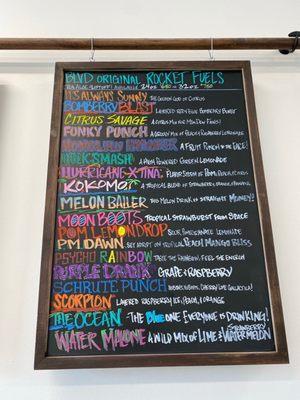 BLVD ORIGINAL ROCKET FUELS
24OZ 32OZ
IT'S ALWAYS SUNNY THE GOLDEN GOD OF CITRUS
BOMBERRY BLAST LAYERED BOMBERRY BOMB!
CITRUS SAVAGE A CITRUS MIX FOR DEW FANS!
FUNKY PUNCH A GROOVY MIX OF PEACH RASPBERRY LEMONADE
A FRUIT PUNCH IN THE FACE!
HULK SMASH A POWERED GREEN LEMONADE
HURRICANE X-TINA
KOKOMO A TROPICAL BLEND OF STRAWBERRY, ORANGE,
MELON BAILER MELON DRINK
MOON BOOTS TROPICAL STRAWBURST FROM SPACE
POM LEMON DROP SOUR POMEGRANATE LEMONADE
PM DAWN SET ADRIFT ON TROPICAL PEACH MANGO BLISS
PSYCHO RAINBOW TASTE THE RAINBOW, FEEL THE
PURPLE DRANK GRAPE & RASPBERRY
SCHRUTE PUNCH
SCORPION LAYERED RASPBERRY ICE, & ORANGE
THE OCEAN -THE BLUE ONE EVERYONE IS DRINKING!
WATER MALONE A WILD MIX OF LIME & STRAWBERRY WATERMELON